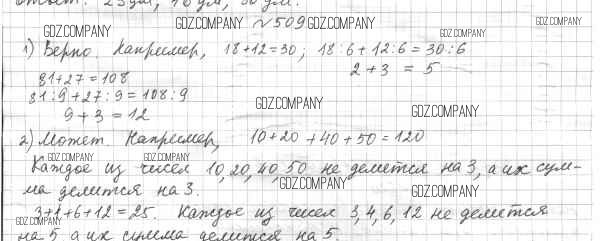 №509
1) Верно. Например, 18+12=30; 18:6+12:6=30:6
2+3 = 5
81+27=108
81:9+27:9=108:9
9+3=12
2) Может. Например, 10+20+40+50=120
Каждое из чисел 10,20,40,50 не делится на 3, а их сум-
ма делится на 3.
3+4+6+12=25. Каждое из чисел 3,4,6,12 не делится
на 5, а их сумма делится на 5.
GDZ.COMPANY
GDZ.COMPANY
GDZ.COMPANY
GDZ.COMPANY
GDZ.COMPANY
GDZ.COMPANY
GDZ.COMPANY
GDZ.COMPANY
GDZ.COMPANY
GDZ.COMPANY
GDZ.COMPANY
GDZ.COMPANY